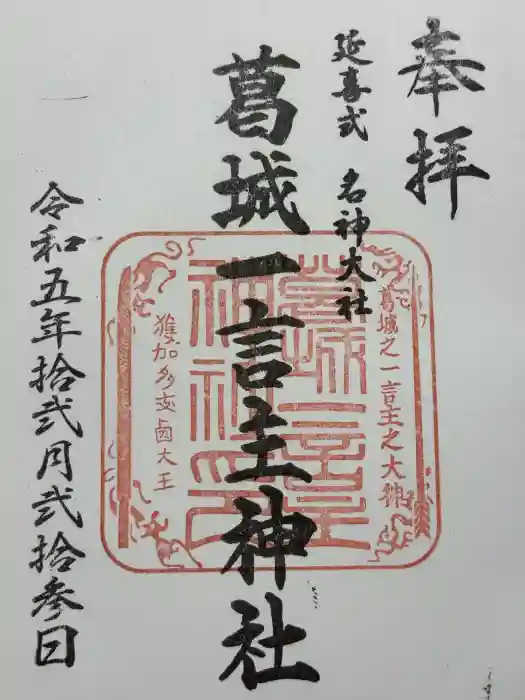 奉拝
延喜式 名神大社
葛城一言主神社
葛城之一言主之大神
葛城一言主
神社印
獲加多支鹵大王
令和五年拾弐月弐拾参日